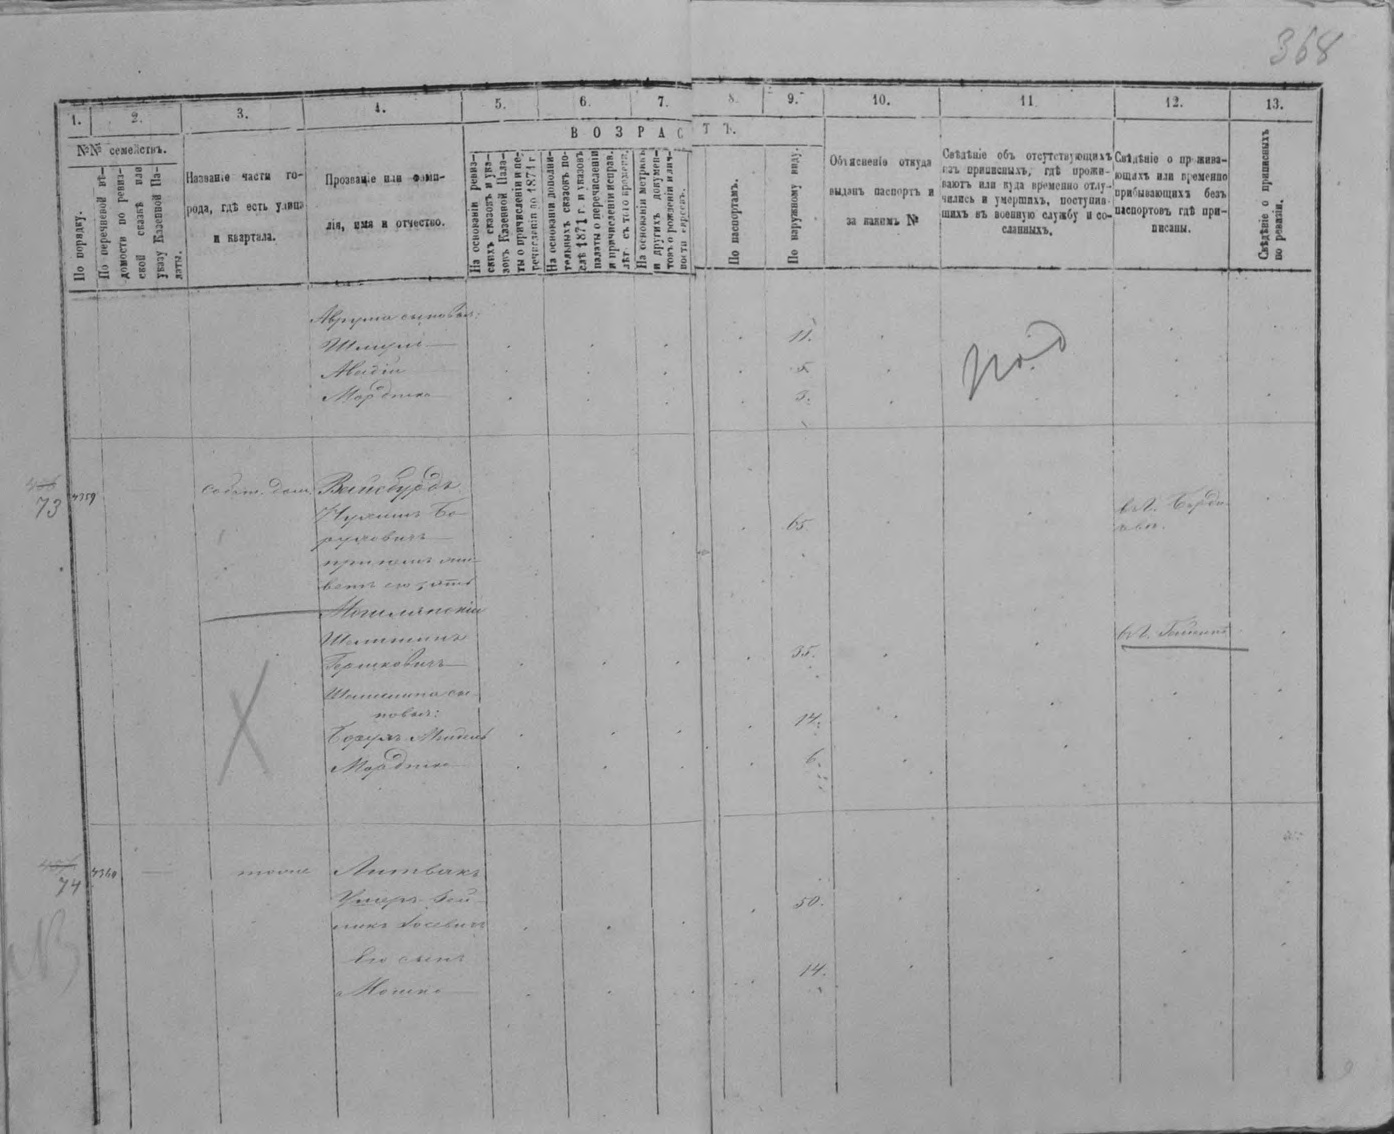 368
1. 2. 3. 4. 5. 6. 7. 8. 9. 10. 11 12. 13.
ВОЗРАСТЪ.
№№ семействъ.
По порядку.
По перечневой вѣ-
домости по ревиз-
ской сказкѣ или
указу Казенной Па-
латы.
Названіе части го-
рода, гдѣ есть улица
и квартала.
Прозваніе или фами-
лія, имя и отчество.
На основаніи ревиз-
скихъ сказокъ и ука-
зовъ Казенной Пала-
ты о причисленіи и пе-
речисленіи до 1871 г.
На основаніи дополни-
тельныхъ сказокъ по-
слѣ 1871 г. и указовъ
палаты о перечисленіи
и причисленіи исправ.
лѣт. съ того времени.
На основаніи метрикъ
и другихъ докумен-
товъ о рожденіи и лич-
ности евреевъ.
По паспортамъ.
По наружному виду.
Объясненіе откуда
выданъ паспортъ и
за какимъ №
Свѣдѣніе объ отсутствующихъ
изъ приписныхъ, гдѣ прожи-
ваютъ или куда временно отлу-
чились и умершихъ, поступив-
шихъ въ военную службу и со-
сланныхъ.
Свѣдѣніе о прожива-
ющихъ или временно
прибывающихъ безъ
паспортовъ гдѣ при-
писаны.
Свѣдѣніе о приписныхъ
по ревизіи.
Аврума сыновья:
Шмуль 11.
Авидій 5
Мордко 3.
73 4359 собст. домъ Вайсбурдъ
Нухимъ Бо-
руховичъ 65 въ г. Берди-
чевѣ.
при немъ жи-
ветъ его зять
Могилянскій
Шлиминъ
Гершковичъ 35.
сы-
новья:
Борухъ Мендель 14.
Мордко 6.
74 4360 тоже Литвакъ
Умеръ Зей-
никъ Іосевичъ 50.
Его сынъ
Мошко 14.